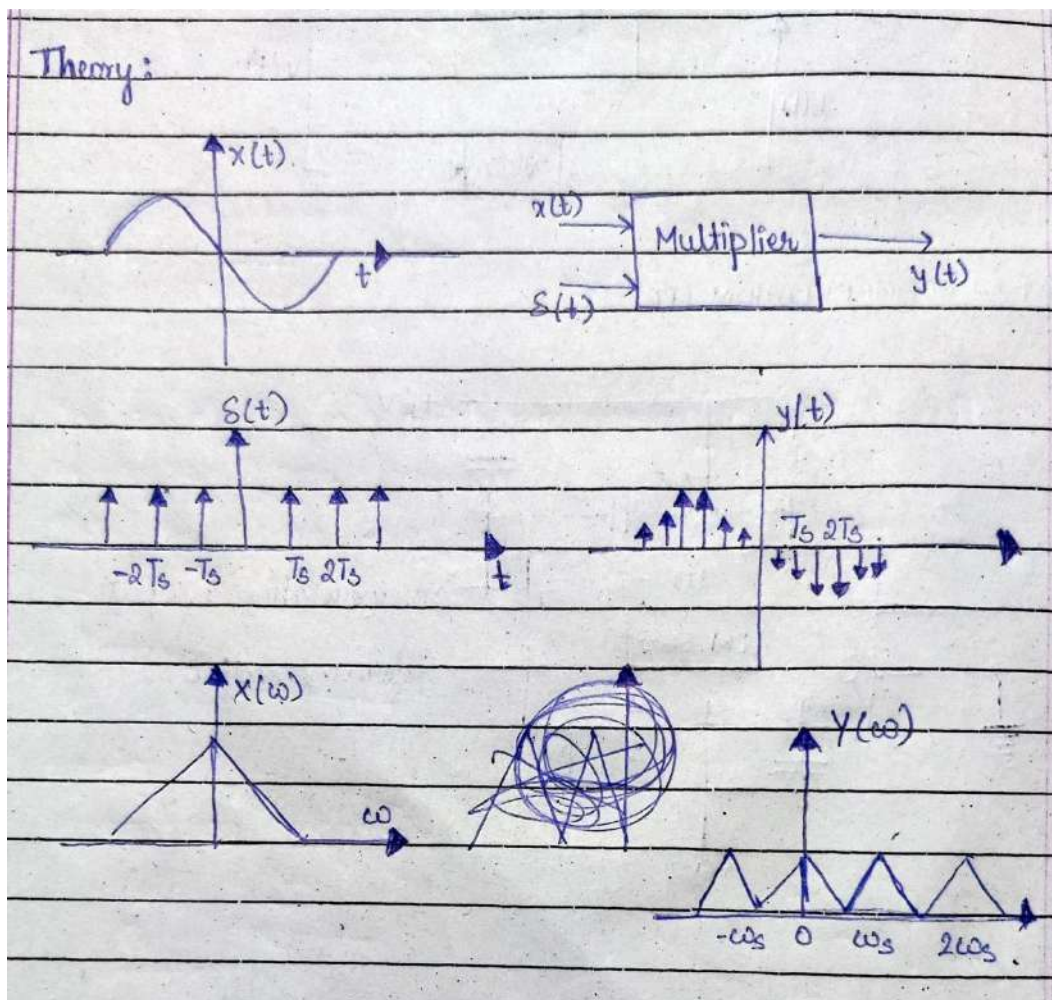 Theory:
x(t)
t
x(t)
Multiplier
y(t)
δ(t)
δ(t)
-2Ts -Ts Ts 2Ts
t
y(t)
Ts 2Ts
X(ω)
ω
Y(ω)
-ωs 0 ωs 2ωs